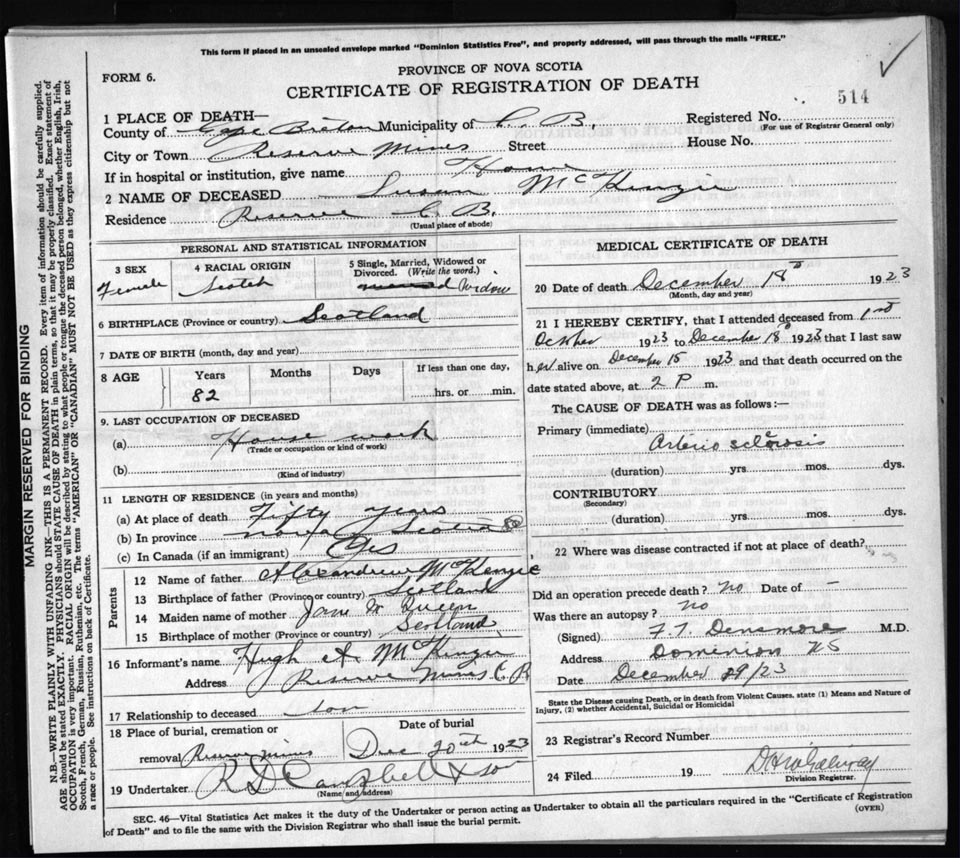 This form if placed in an unsealed envelope marked "Dominion Statistics Free", and properly addressed, will pass through the mails "FREE."
FORM 6.
PROVINCE OF NOVA SCOTIA
CERTIFICATE OF REGISTRATION OF DEATH
514
1 PLACE OF DEATH—
County of Cape Breton Municipality of C. B. Registered No.
(For use of Registrar General only)
City or Town Reserve Mines Street House No.
If in hospital or institution, give name Home
2 NAME OF DECEASED Susan McKenzie
Residence Reserve C. B.
(Usual place of abode)
PERSONAL AND STATISTICAL INFORMATION
3 SEX Female
4 RACIAL ORIGIN Scotch
5 Single, Married, Widowed or Divorced. (Write the word.) Widow
6 BIRTHPLACE (Province or country) Scotland
7 DATE OF BIRTH (month, day and year)
8 AGE Years 82 Months Days If less than one day, hrs. or min.
9. LAST OCCUPATION OF DECEASED
(a) House work
(Trade or occupation or kind of work)
(b)
(Kind of industry)
11 LENGTH OF RESIDENCE (in years and months)
(a) At place of death Fifty years
(b) In province Nova Scotia 50
(c) In Canada (if an immigrant) Yes
Parents
12 Name of father Alexandrew McKenzie
13 Birthplace of father (Province or country) Scotland
14 Maiden name of mother Jane McQueen
15 Birthplace of mother (Province or country) Scotland
16 Informant's name Hugh A. McKenzie
Address Reserve Mines C. B
17 Relationship to deceased son
18 Place of burial, cremation or removal Reserve Mines
Date of burial Dec 20th 1923
19 Undertaker R D Campbell & son
(Name and address)
MEDICAL CERTIFICATE OF DEATH
20 Date of death December 18th 1923
(Month, day and year)
21 I HEREBY CERTIFY, that I attended deceased from 1st
October 1923 to December 18th 1923 that I last saw
her alive on December 15 1923 and that death occurred on the
date stated above, at 2 P m.
The CAUSE OF DEATH was as follows:—
Primary (immediate)
Arterio sclerosis
(duration) yrs. mos. dys.
CONTRIBUTORY
(Secondary)
(duration) yrs. mos. dys.
22 Where was disease contracted if not at place of death?
Did an operation precede death? no Date of —
Was there an autopsy? no
(Signed) F. T. Densmore M.D.
Address Dominion NS
Date December /23
State the Disease causing Death, or in death from Violent Causes, state (1) Means and Nature of
Injury, (2) whether Accidental, Suicidal or Homicidal
23 Registrar's Record Number
24 Filed 19
Division Registrar.
(OVER)
SEC. 46—Vital Statistics Act makes it the duty of the Undertaker or person acting as Undertaker to obtain all the particulars required in the "Certificate of Registration
of Death" and to file the same with the Division Registrar who shall issue the burial permit.
MARGIN RESERVED FOR BINDING
N.B.—WRITE PLAINLY WITH UNFADING INK—THIS IS A PERMANENT RECORD. Every item of information should be carefully supplied.
AGE should be stated EXACTLY. PHYSICIANS should STATE CAUSE OF DEATH in plain terms, so that it may be properly classified. Exact statement of
OCCUPATION is very important. RACIAL ORIGIN will be described by stating to what people or tongue the deceased person belonged, whether English, Irish,
Scotch, French, German, Russian, Ruthenian, etc. The terms "AMERICAN" OR "CANADIAN" MUST NOT BE USED as they express citizenship but not
a race or people. See instructions on back of Certificate.